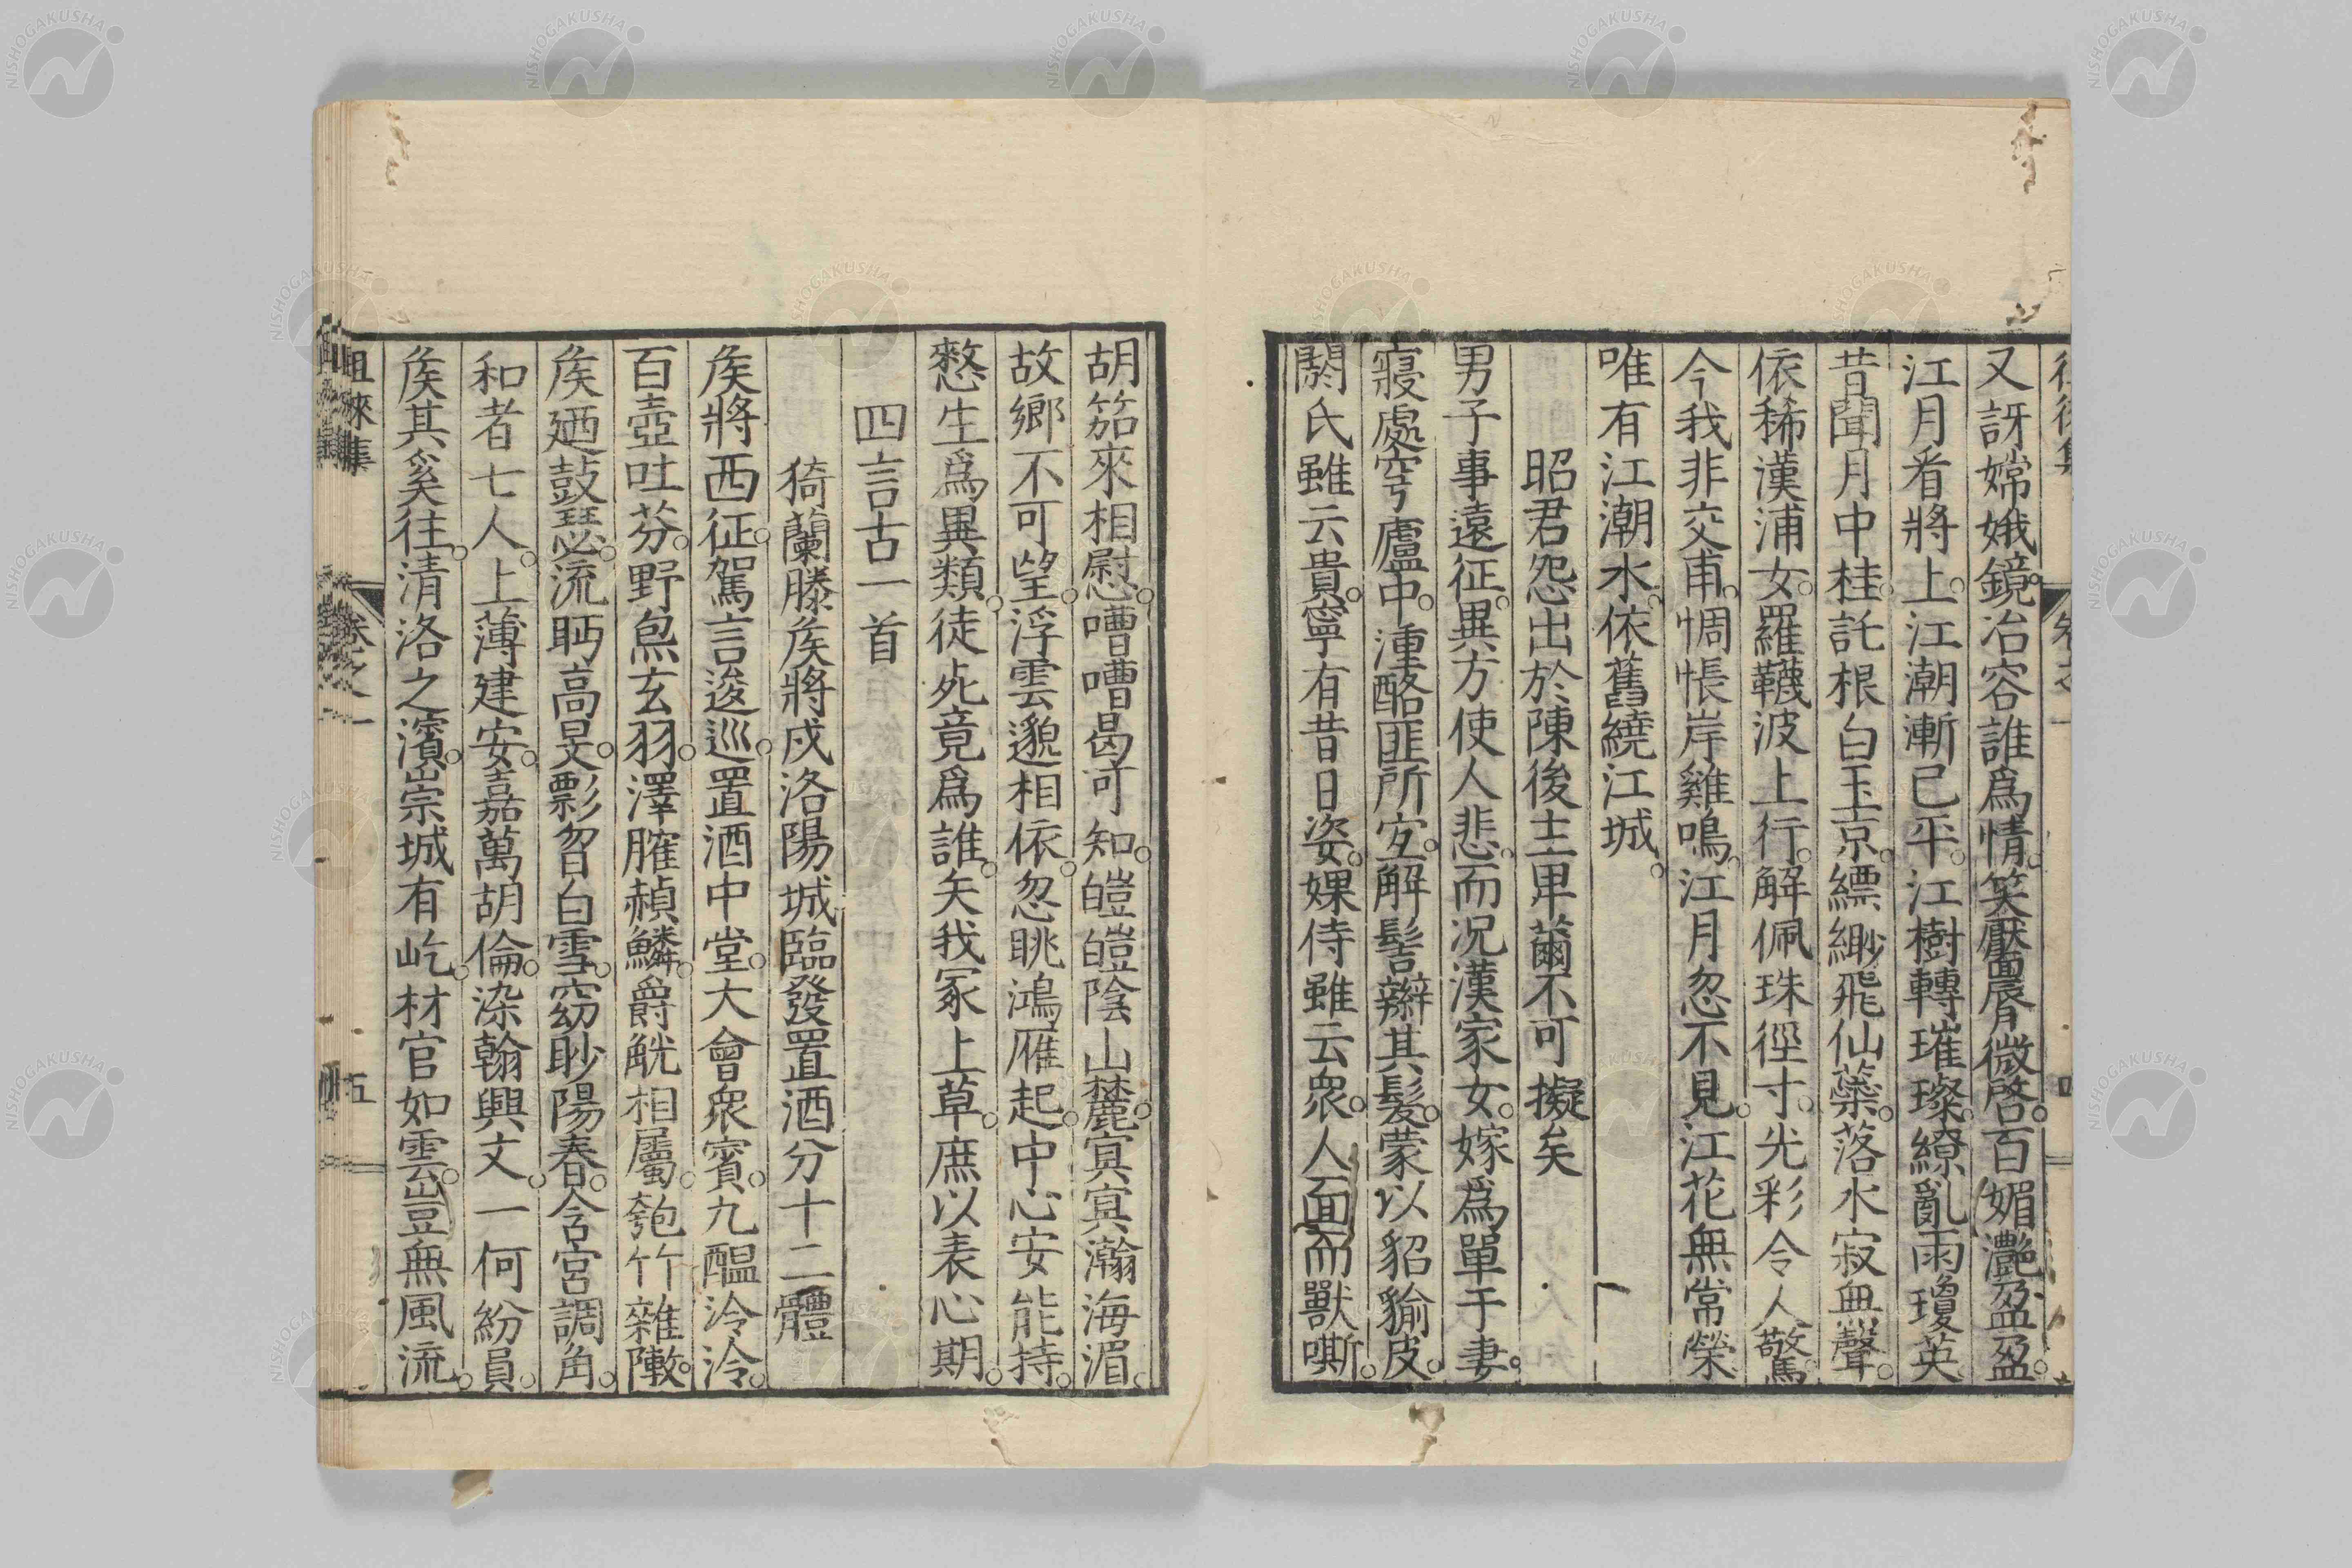 又訝嫦娥鏡。冶容誰爲情。笑靨脣微啓。百媚灔盈盈。
江月看將上。江潮漸已平。江樹轉璀璨。繚亂雨瓊英
昔聞月中桂。託根白玉京。縹緲飛仙藥。落水寂無聲。
依稀漢浦女。羅韈波上行。解佩珠徑寸。光彩令人驚。
今我非交甫。惆悵岸雞鳴。江月忽不見。江花無常榮
唯有江潮水。依舊繞江城。
昭君怨出於陳後主卑薾不可擬矣
男子事遠征。異方使人悲。而况漢家女。嫁爲單于妻。
寢處穹廬中。湩酪匪所宐。解髻辮其髮。蒙以貂貐皮。
閼氏雖云貴。寧有昔日姿。婐侍雖云衆。人面而獸嘶。
胡笳來相慰。嘈嘈曷可知。皚皚陰山麓。寘寘瀚海湄。
故鄉不可望。浮雲邈相依。忽眺鴻雁起。中心安能持。
憗生爲異類。徒死竟爲誰。矢我冢上草。庶以表心期。
四言古一首
猗蘭滕矦將戍洛陽城臨發置酒分十二體
矦將西征。駕言逡巡。置酒中堂。大會衆賓。九醞泠泠。
百壺吐芬。野炰玄羽。澤臛赬鱗。爵觥相屬。匏竹雜陳。
矦廼鼓瑟。流眄高旻。飄曶白雪。窈眇陽春。含宮調角。
和者七人。上薄建安。嘉萬胡倫。染翰興文。一何紛員。
矦其奚往。清洛之濱。崇城有屹。材官如雲。豈無風流。
徂徠集
卷之一
五